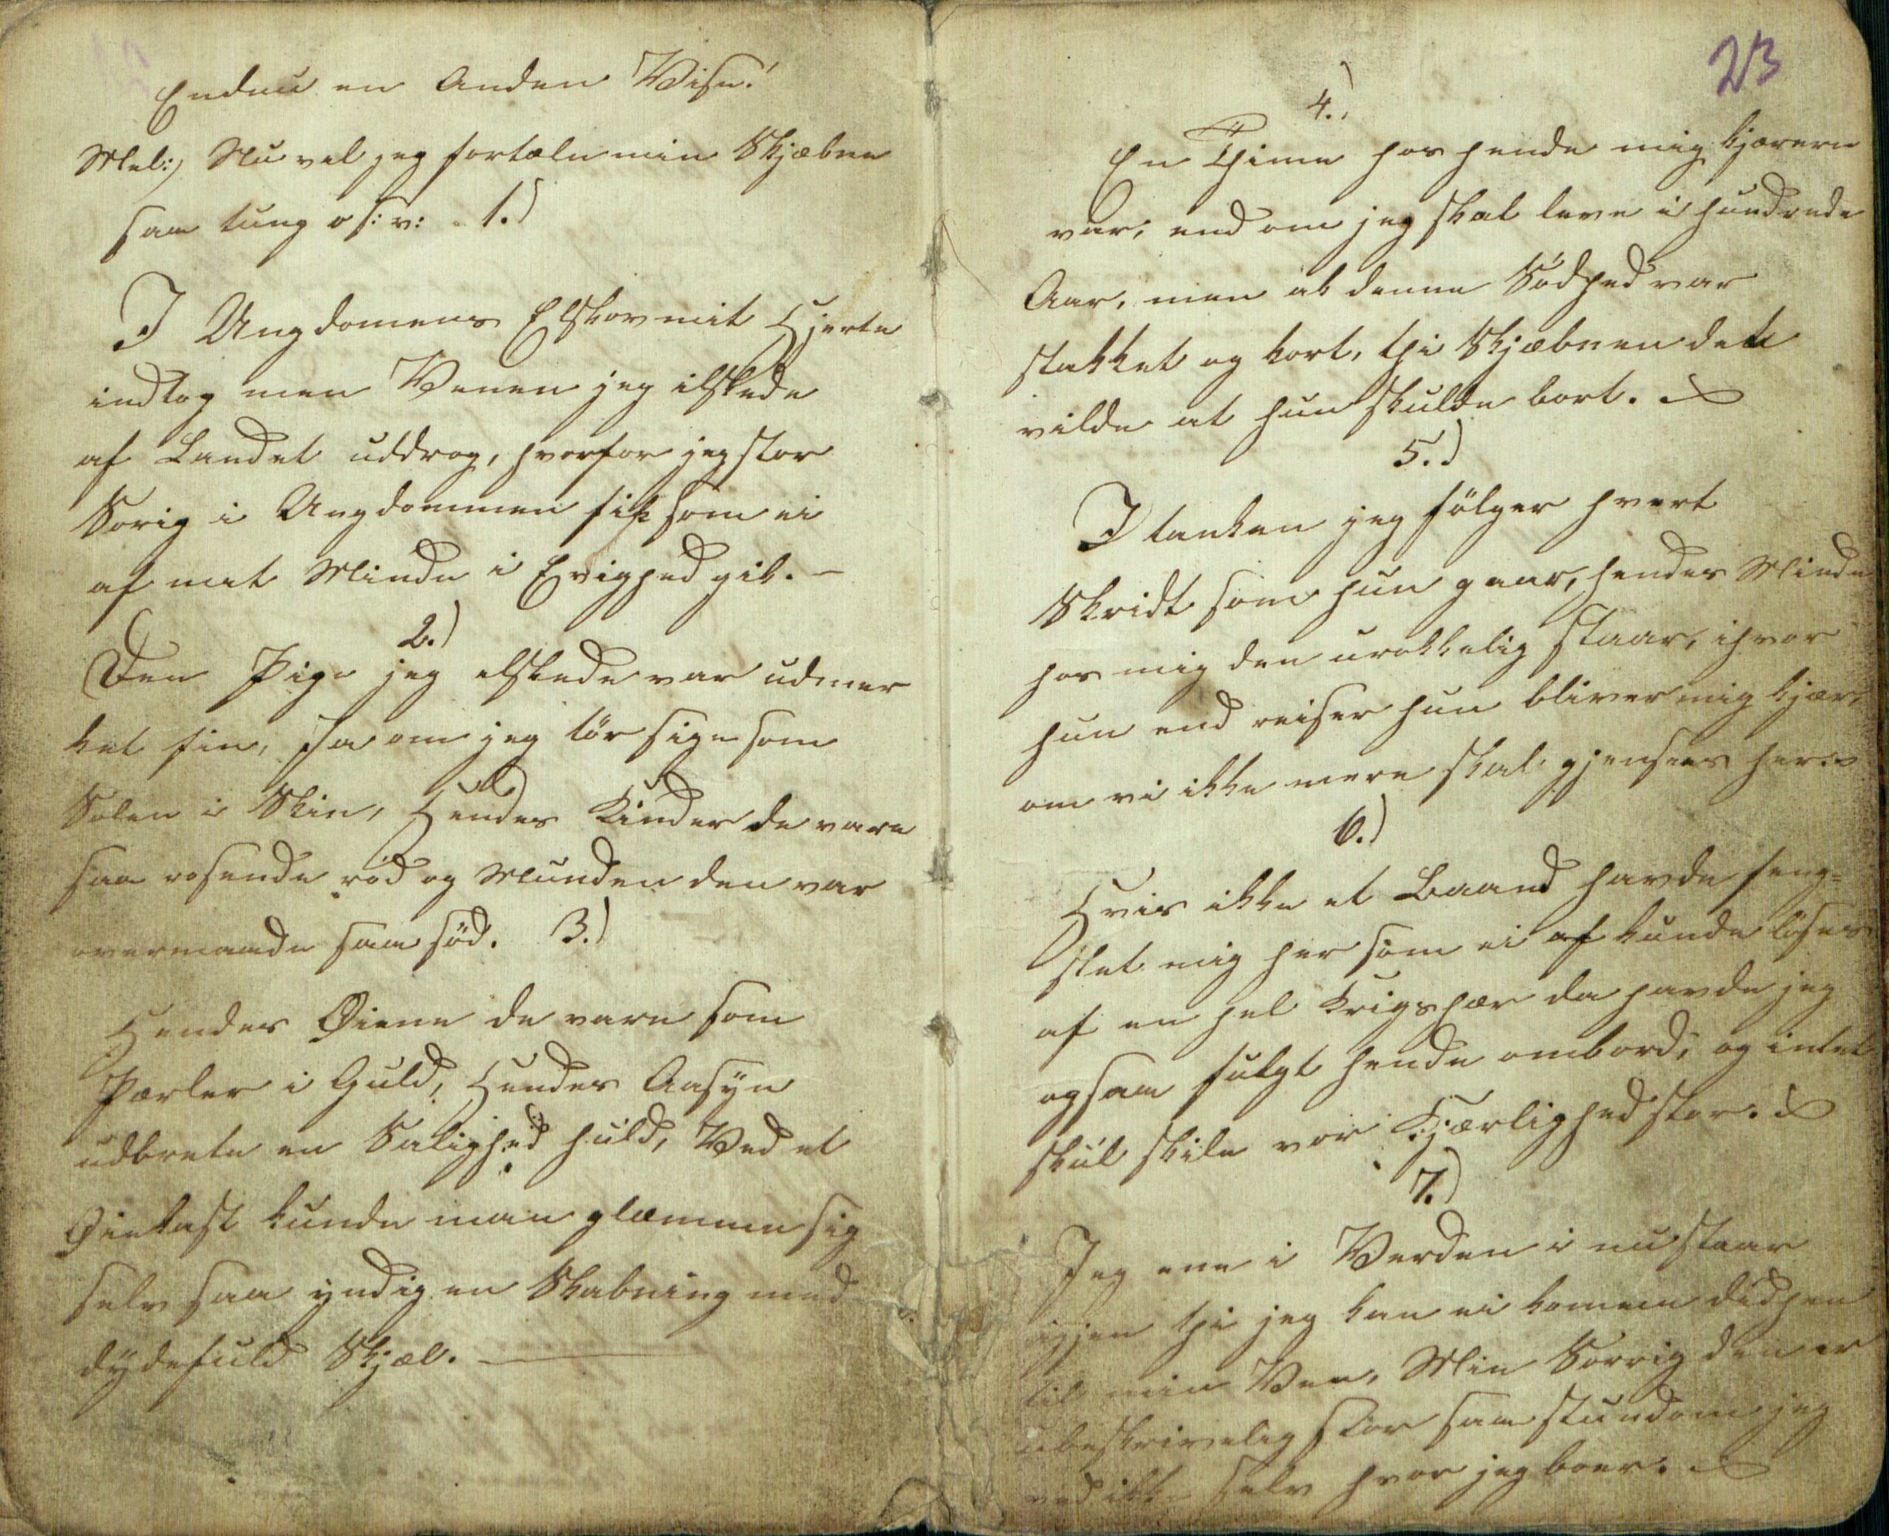 Endnu en Anden Vise!
Mel:) Nu vel jeg fortæle min Skjæbne
saa tung o s: v: 1.)
I Ungdomens Elskov mit Hjerte
indtog men Venen jeg elskede
af Landet uddrog, hvorfor jeg stor
Sorig i Ungdommen fik som ei
af met Minde i Evighed gik. —
2.)
Den Pige jeg elskede var udmer
ket fin, Ja om jeg tör sige som
Solen i Skin, Hendes Kinder de vare
saa rosende röd og Munden den var
overmaade saa söd. 3.)
Hendes Øiene de vare som
Pærler i Guld, Hendes Aasÿn
udbrete en Salighed huld, Ved et
Øiekast kunde man glemme sig
selv saa yndig en Skabning med
dÿdefuld Skjæl. —
23
4.)
En Thime hos hende mig kjærere
var, end om jeg skal leve i hundrede
Aar, men ak denne Södhed var
stakket og kort, thi Skjæbnen det
vilde at hun skulde bort.
5.)
I tanken jeg fölger hvert
Skridt som hun gaar, hendes Minde
hos mig den urokkelig staar, ihvor
hun end reiser hun bliver mig kjær,
om vi ikke mere skal gjensees her.
6.)
Hvis ikke et Baand havde feng=
slet mig her som ei af kunde löses
af en hel Krigshær da havde jeg
ogsaa fulgt hende ombord, og intet
skul skile vor Kjærlighed stor.
7.)
Jeg ene i Verden i nu staar
igjen thi jeg kan ei komme didhen
til min Ven, Min Sorrig den er
ubeskrivelig stor saa stundom jeg
ved ikke selv hvor jeg boer.